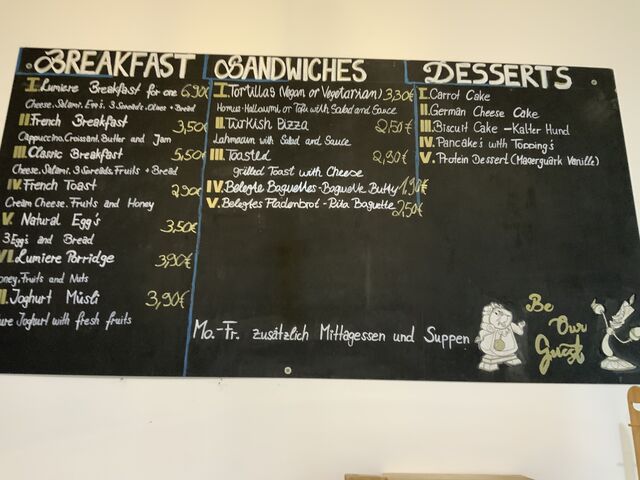 BREAKFAST
I. Lumiere Breakfast for one 6,90€
Cheese, Salami, Eggs, 3 Spreads, Olives + Bread
II French Breakfast 3,50€
Cappuccino, Croissant, Butter and Jam
III. Classic Breakfast 5,50€
Cheese, Salami, 3 Spreads, Fruits + Bread
IV. French Toast 2,90€
Cream Cheese, Fruits and Honey
V. Natural Egg's 3,50€
3 Eggs and Bread
VI. Lumiere Porridge 3,90€
oney, Fruits and Nuts
II. Joghurt Müsli 3,90€
ure Joghurt with fresh fruits
SANDWICHES
I. Tortillas (Vegan or Vegetarian) 3,30€
Homus-Halloumi or Tofu with Salad and Sauce
II. Turkish Pizza 2,50€
Lahmacun with Salad and Sauce
III. Toasted 2,90€
grilled Toast with Cheese
IV. Belegte Baguettes - Baguette Butty 1,90€
V. Belegtes Fladenbrot - Pita Baguette 2,50€
DESSERTS
I. Carrot Cake
II. German Cheese Cake
III. Biscuit Cake - Kalter Hund
IV. Pancake's with Topping's
V. Protein Dessert (Magerquark Vanille)
Mo.-Fr. zusätzlich Mittagessen und Suppen
Be
Our
Guest